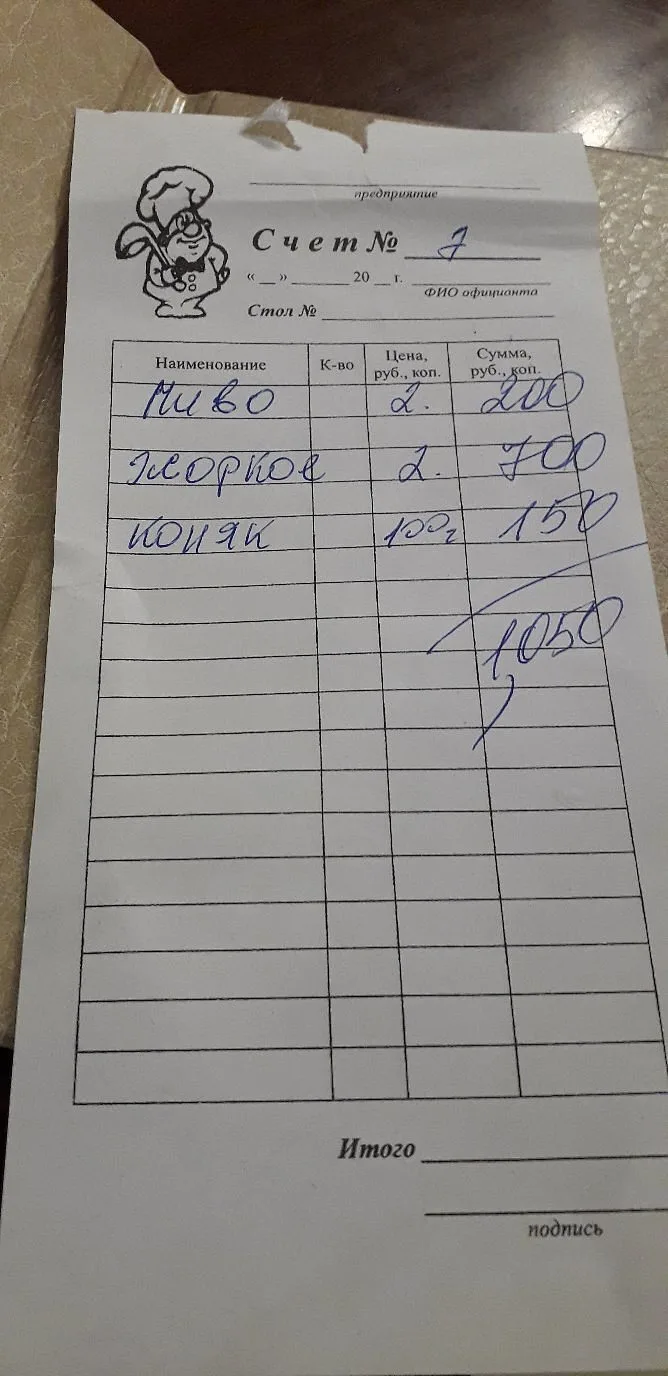 предприятие
Счет № 7
« __ » ______ 20 __ г. ____________
ФИО официанта
Стол №
Наименование К-во Цена, руб., коп. Сумма, руб., коп.
Пиво 2. 200
жоркое 2. 700
коняк 100г 150
1050
Итого
подпись